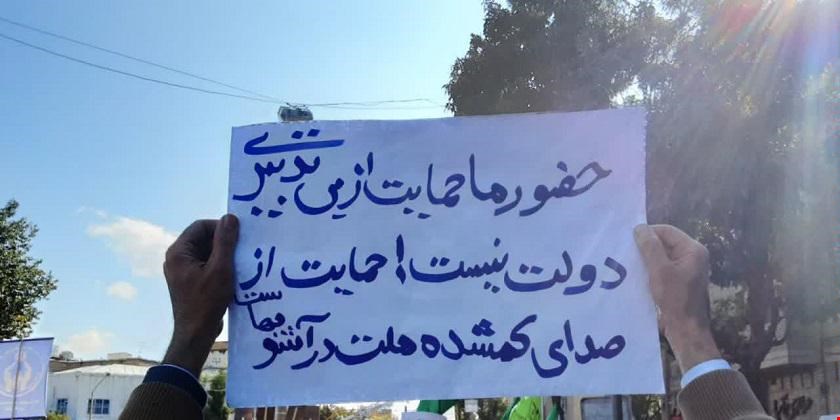 حضور ما حمایت از بی تدبیری
دولت نیست! حمایت از
صدای گمشده ملت در آشوبهاست